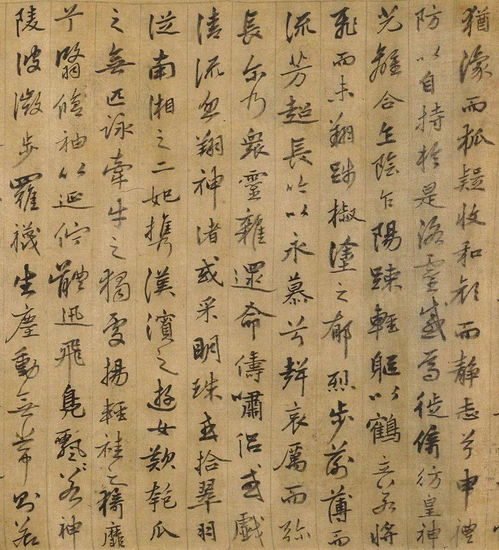 猶豫而狐疑收和顏而靜志兮申禮
防以自持於是洛靈感焉徙倚彷皇神
光離合乍陰乍陽竦輕軀以鶴立若將
飛而未翔踐椒塗之郁烈步蘅薄而
流芳超長吟以永慕兮聲哀厲而彌
長爾乃衆靈雜遝命儔嘯侶或戲
清流或翔神渚或采明珠或拾翠羽
從南湘之二妃攜漢濱之遊女歎匏瓜
之無匹詠牽牛之獨處揚輕袿之猗靡
兮翳脩袖以延佇體迅飛鳧飄忽若神
陵波微步羅襪生塵動無常則若